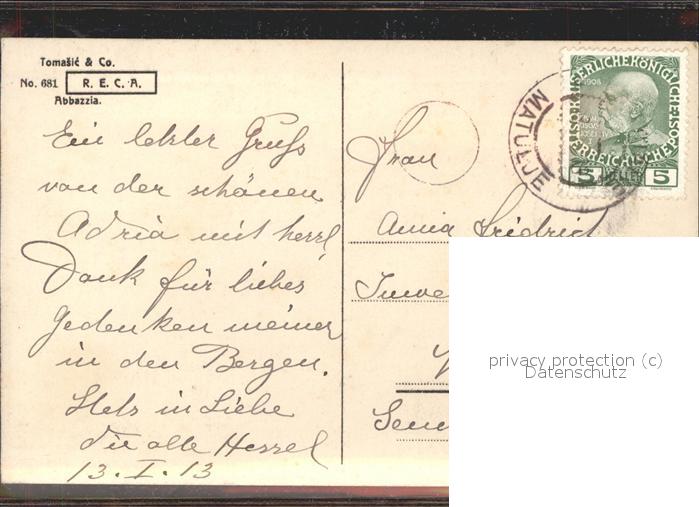 Tomašić & Co.
No. 681 R. E. C. A.
Abbazzia.
Ein letzter Gruß
von der schönen
Adria mit herzl.
Dank für liebes
Gedenken meiner
in den Bergen.
Stets in Liebe
die alte
13. I. 13
Frau
Anna Fridrich
1908
KAISERLICHE KÖNIGLICHE
ÖSTERREICHISCHE POST
5 5
HELLER
MATULJE
privacy protection (c)
Datenschutz